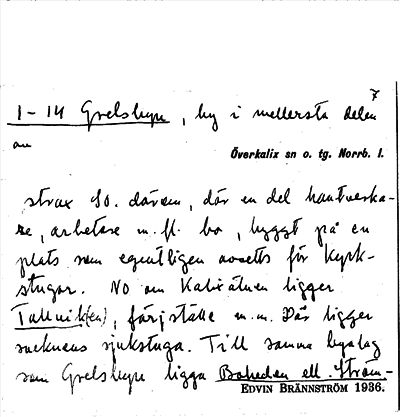 7
1-14 Grelsbyn, by i mellersta delen
av
Överkalix sn o. tg. Norrb. l.
strax So. därom, där en del hantverka-
re, arbetare m. fl. bo, byggt på en
plats som egentligen avsetts för kyrk-
stugor. No om Kalixälven ligger
Tallvik(en), färjställe m. m. Där ligger
socknens sjukstuga. Till samma byalag
som Grelsbyn ligga Boheden ell. Ström-
EDVIN BRÄNNSTRÖM 1936.